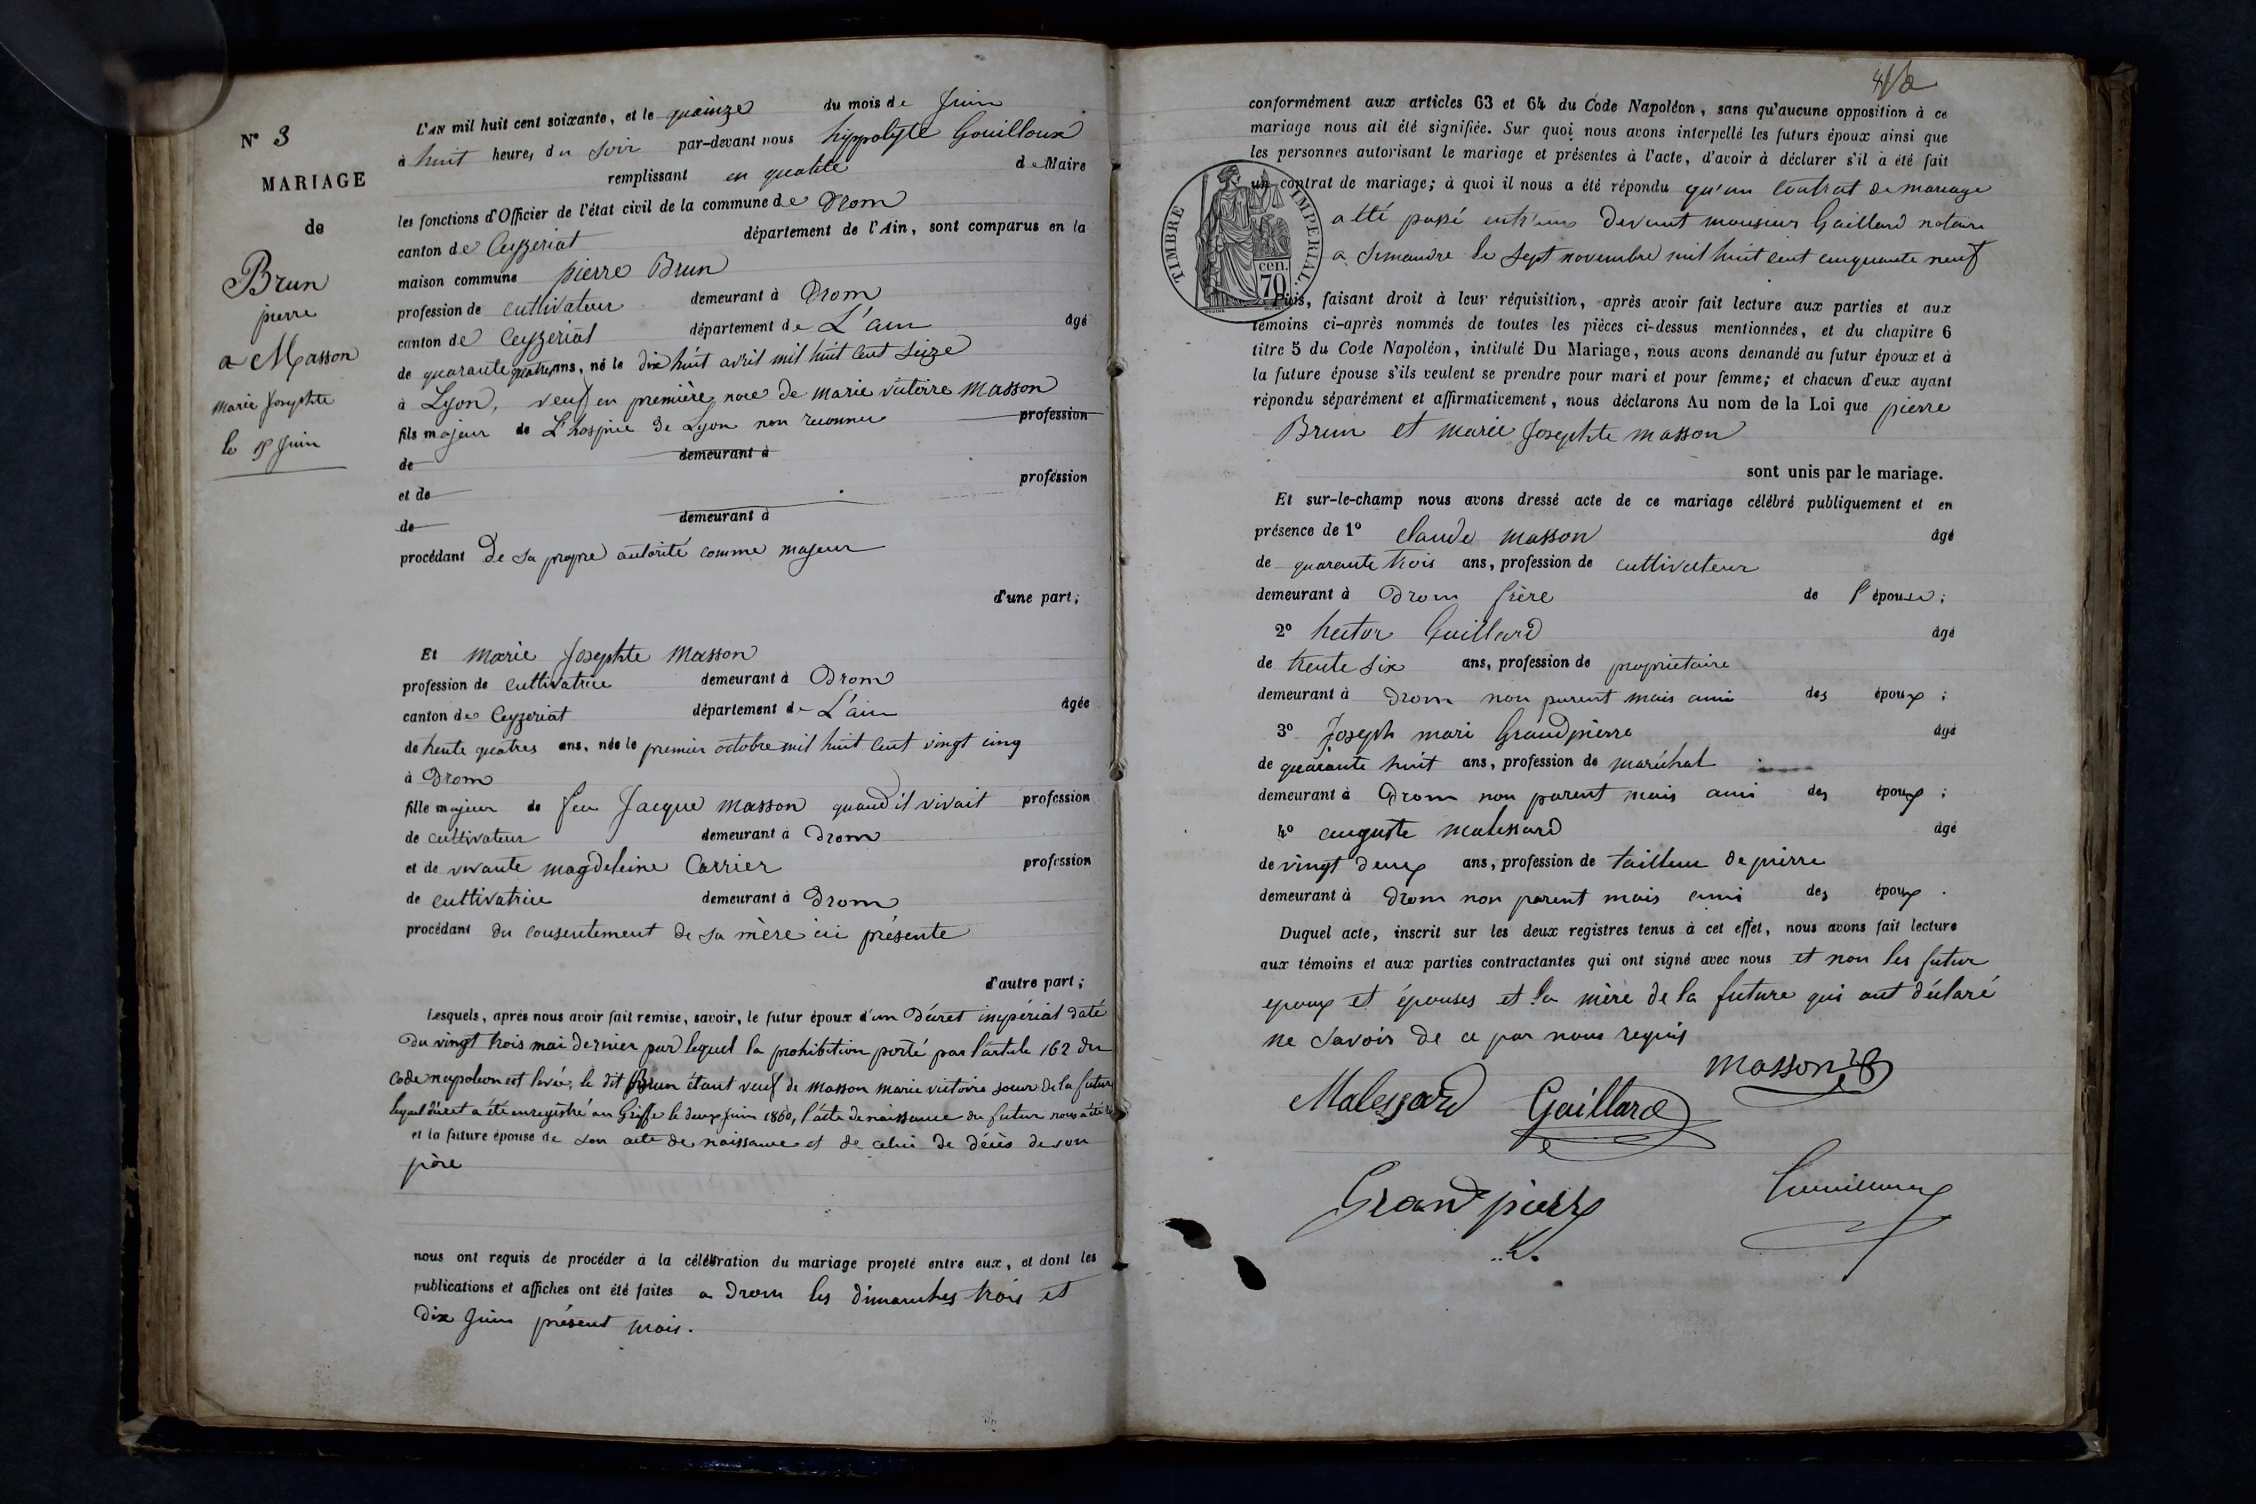 N° 3
MARIAGE
de
Brun
pierre
a Masson
marie Josephte
le 15 Juin
L'AN mil huit cent soixante, et le quainze du mois de Juin
à huit heures du soir par-devant nous hippolyte Gouilloux
remplissant en qualité de Maire
les fonctions d'Officier de l'état civil de la commune de Drom
canton de Ceyzeriat département de l'Ain, sont comparus en la
maison commune pierre Brun
profession de cultivateur demeurant à Drom
canton de Ceyzeriat département de L'ain âgé
de quarante quatre ans, né le dix huit avril mil huit cent seize
à Lyon, veuf en première noce de marie victoire masson
fils majeur de L'hospice de Lyon non reconnu profession
de demeurant à
et de profession
de demeurant à
procédant De sa propre autorité comme majeur
d'une part;
Et marie Josephte masson
profession de cultivatrice demeurant à Drom
canton de Ceyzeriat département de L'ain âgée
de trente quatres ans, née le premier octobre mil huit cent vingt cinq
à Drom
fille majeur de feu Jacque masson quand il vivait profession
de cultivateur demeurant à Drom
et de vivante magdeleine Carrier profession
de cultivatrice demeurant à Drom
procédant du consentement de sa mère ici présente
d'autre part;
Lesquels, après nous avoir fait remise, savoir, le futur époux d'un Décret impérial daté
du vingt trois mai dernier par lequel la prohibition porté par l'article 162 du
Code napoleon est levée, le dit Brun étant veuf de masson marie victoire soeur de la future
lequel décret a été enregistré au Griffe le deux juin 1860, l'acte de naissance du futur nous a été
et la future épouse de son acte de naissance et de celui de décès de son
père
nous ont requis de procéder à la célébration du mariage projeté entre eux, et dont les
publications et affiches ont été faites a Drom les dimanches trois et
Dix Juin présent mois.
conformément aux articles 63 et 64 du Code Napoléon, sans qu'aucune opposition à ce
mariage nous ait été signifiée. Sur quoi nous avons interpellé les futurs époux ainsi que
les personnes autorisant le mariage et présentes à l'acte, d'avoir à déclarer s'il a été fait
un contrat de mariage; à quoi il nous a été répondu qu'un contrat de mariage
a été passé entr'eux devant monsieur Gaillard notaire
a Simandre le sept novembre mil huit cent cinquante neuf
TIMBRE IMPERIAL.
cen.
70
Puis, faisant droit à leur réquisition, après avoir fait lecture aux parties et aux
témoins ci-après nommés de toutes les pièces ci-dessus mentionnées, et du chapitre 6
titre 5 du Code Napoléon, intitulé Du Mariage, nous avons demandé au futur époux et à
la future épouse s'ils veulent se prendre pour mari et pour femme; et chacun d'eux ayant
répondu séparément et affirmativement, nous déclarons Au nom de la Loi que pierre
Brun et marie Josephte masson
sont unis par le mariage.
Et sur-le-champ nous avons dressé acte de ce mariage célébré publiquement et en
présence de 1° claude masson âgé
de quarente trois ans, profession de cultivateur
demeurant à Drom frère de l'épouse;
2° hector Guillard âgé
de trente six ans, profession de proprietaire
demeurant à Drom non parent mais ami des époux;
3° Joseph mari Grandpierre âgé
de quarante huit ans, profession de maréchal
demeurant à Drom non parent mais ami des époux;
4° auguste malessard âgé
de vingt deux ans, profession de tailleur de pierre
demeurant à Drom non parent mais ami des époux.
Duquel acte, inscrit sur les deux registres tenus à cet effet, nous avons fait lecture
aux témoins et aux parties contractantes qui ont signé avec nous et non les futur
epoux et épouses et la mère de la future qui ont déclaré
ne savoir de ce par nous requis
masson
Malessard Gaillard
Grand pierre